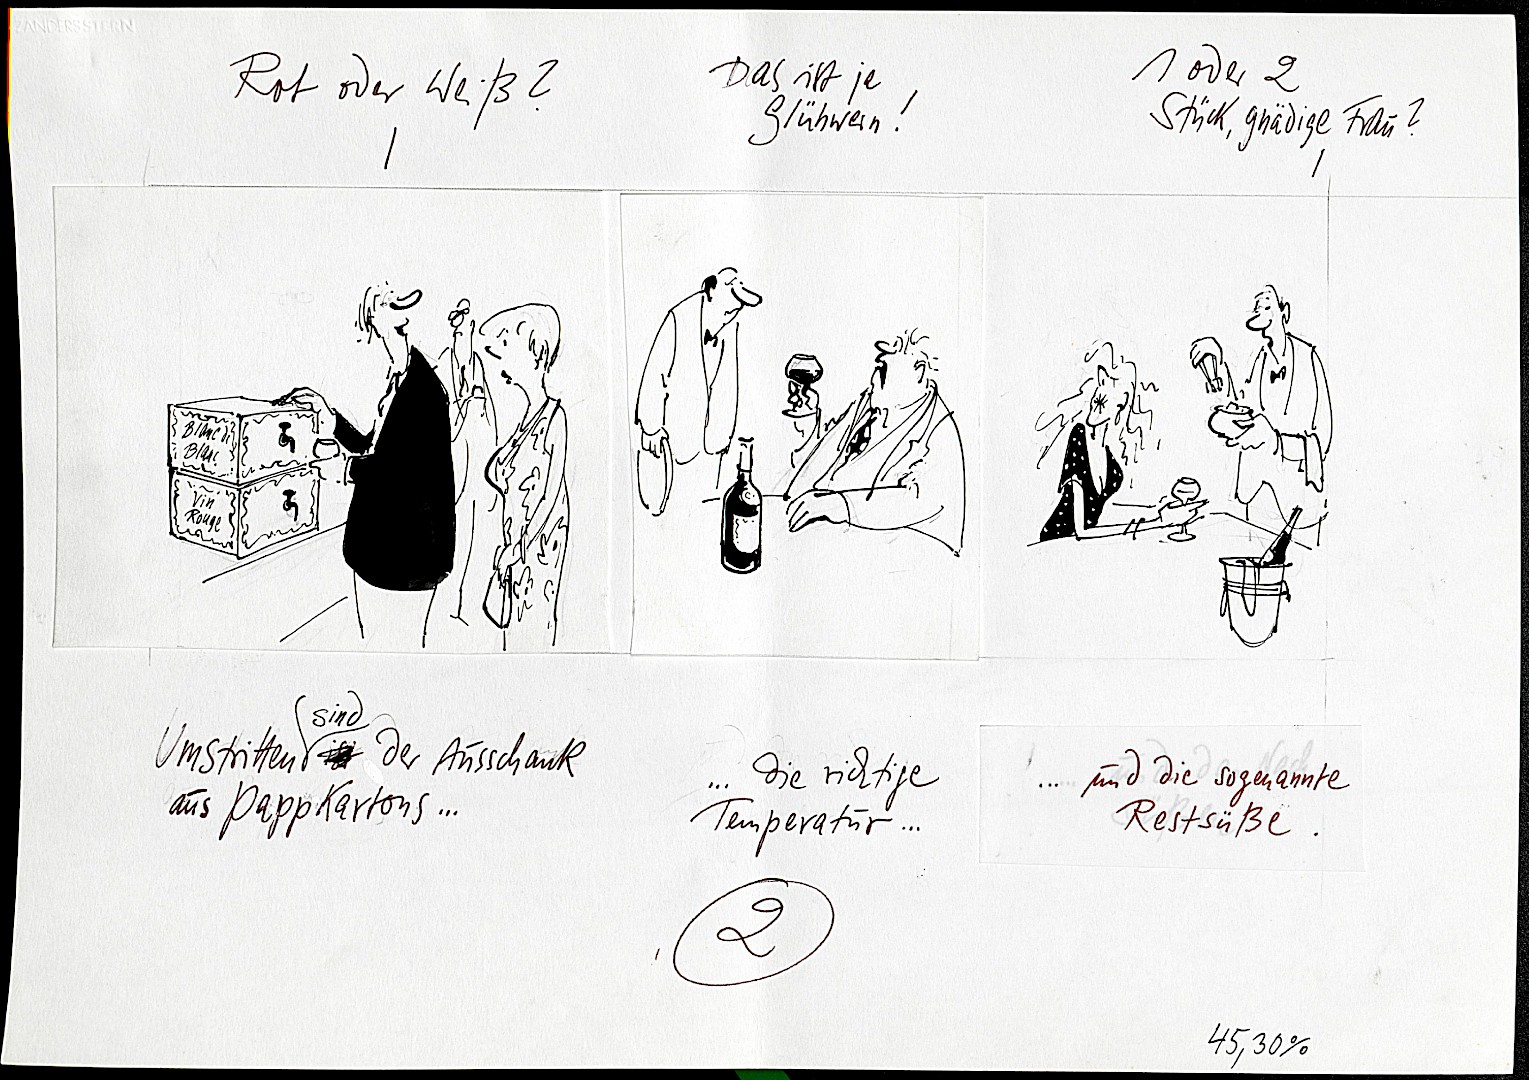 ZANDERS STERN
Rot oder Weiß?
Das ist ja
Glühwein!
1 oder 2
Stück, gnädige Frau?
Blanc de
Blanc
Vin
Rouge
sind
Umstritten der Ausschank
aus Pappkartons...
... die richtige
Temperatur...
.... und die sogenannte
Restsüße.
2
45,30%